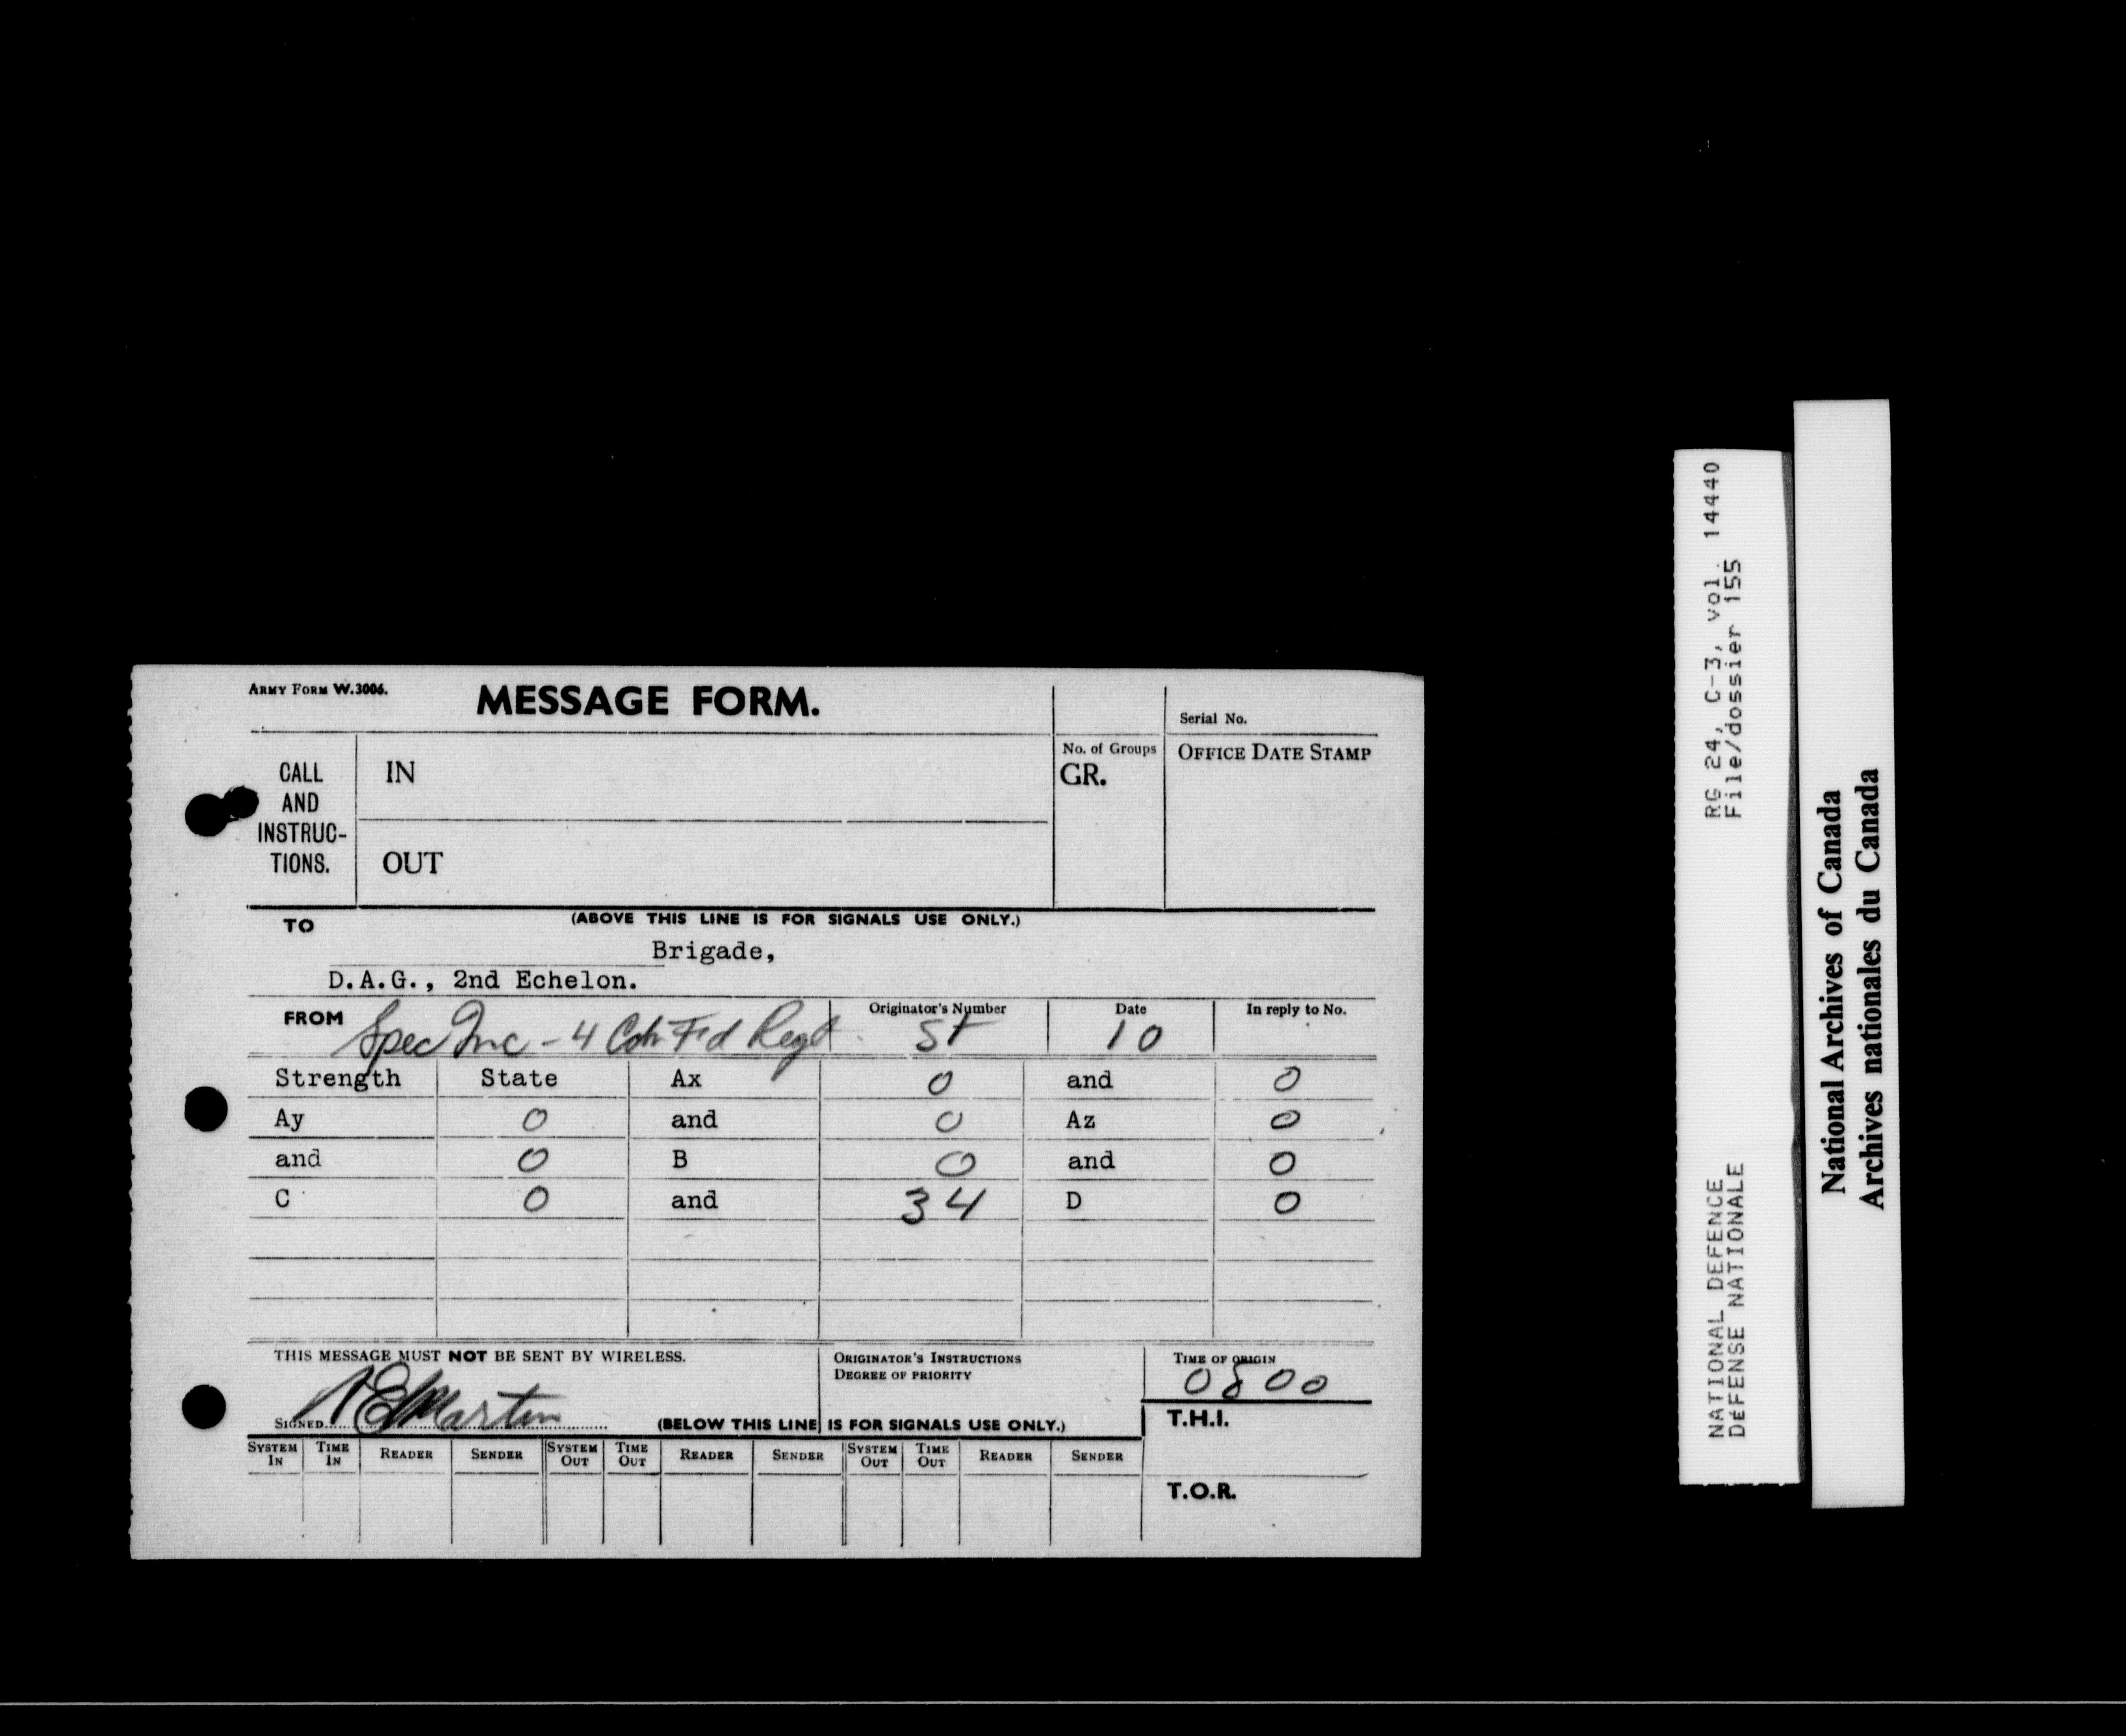 ARMY FORM W.3006.
MESSAGE FORM.
Serial No.
CALL AND INSTRUC-TIONS.
IN
No. of Groups
GR.
OFFICE DATE STAMP
OUT
(ABOVE THIS LINE IS FOR SIGNALS USE ONLY.)
TO
Brigade,
D.A.G., 2nd Echelon.
FROM Spec Inc - 4 Cdn Fd Regt
Originator's Number ST
Date 10
In reply to No.
Strength State Ax 0 and 0
Ay 0 and 0 Az 0
and 0 B 0 and 0
C 0 and 34 D 0
THIS MESSAGE MUST NOT BE SENT BY WIRELESS.
ORIGINATOR'S INSTRUCTIONS
DEGREE OF PRIORITY
TIME OF ORIGIN
0800
SIGNED Martin
(BELOW THIS LINE IS FOR SIGNALS USE ONLY.)
T.H.I.
SYSTEM IN TIME IN READER SENDER SYSTEM OUT TIME OUT READER SENDER SYSTEM OUT TIME OUT READER SENDER
T.O.R.
NATIONAL DEFENCE RG 24, C-3, vol. 14440
DÉFENSE NATIONALE File/dossier 155
National Archives of Canada
Archives nationales du Canada